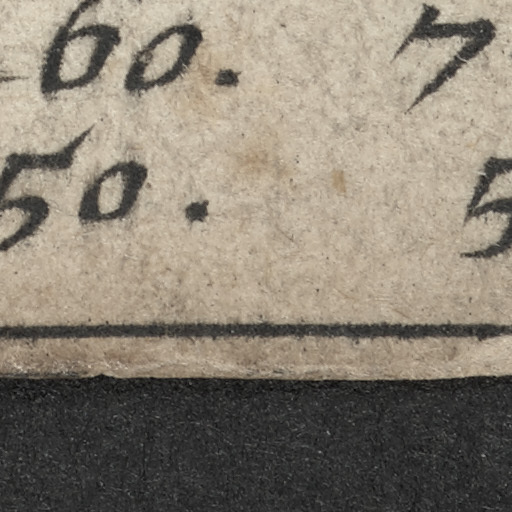 60. 7
50. 5